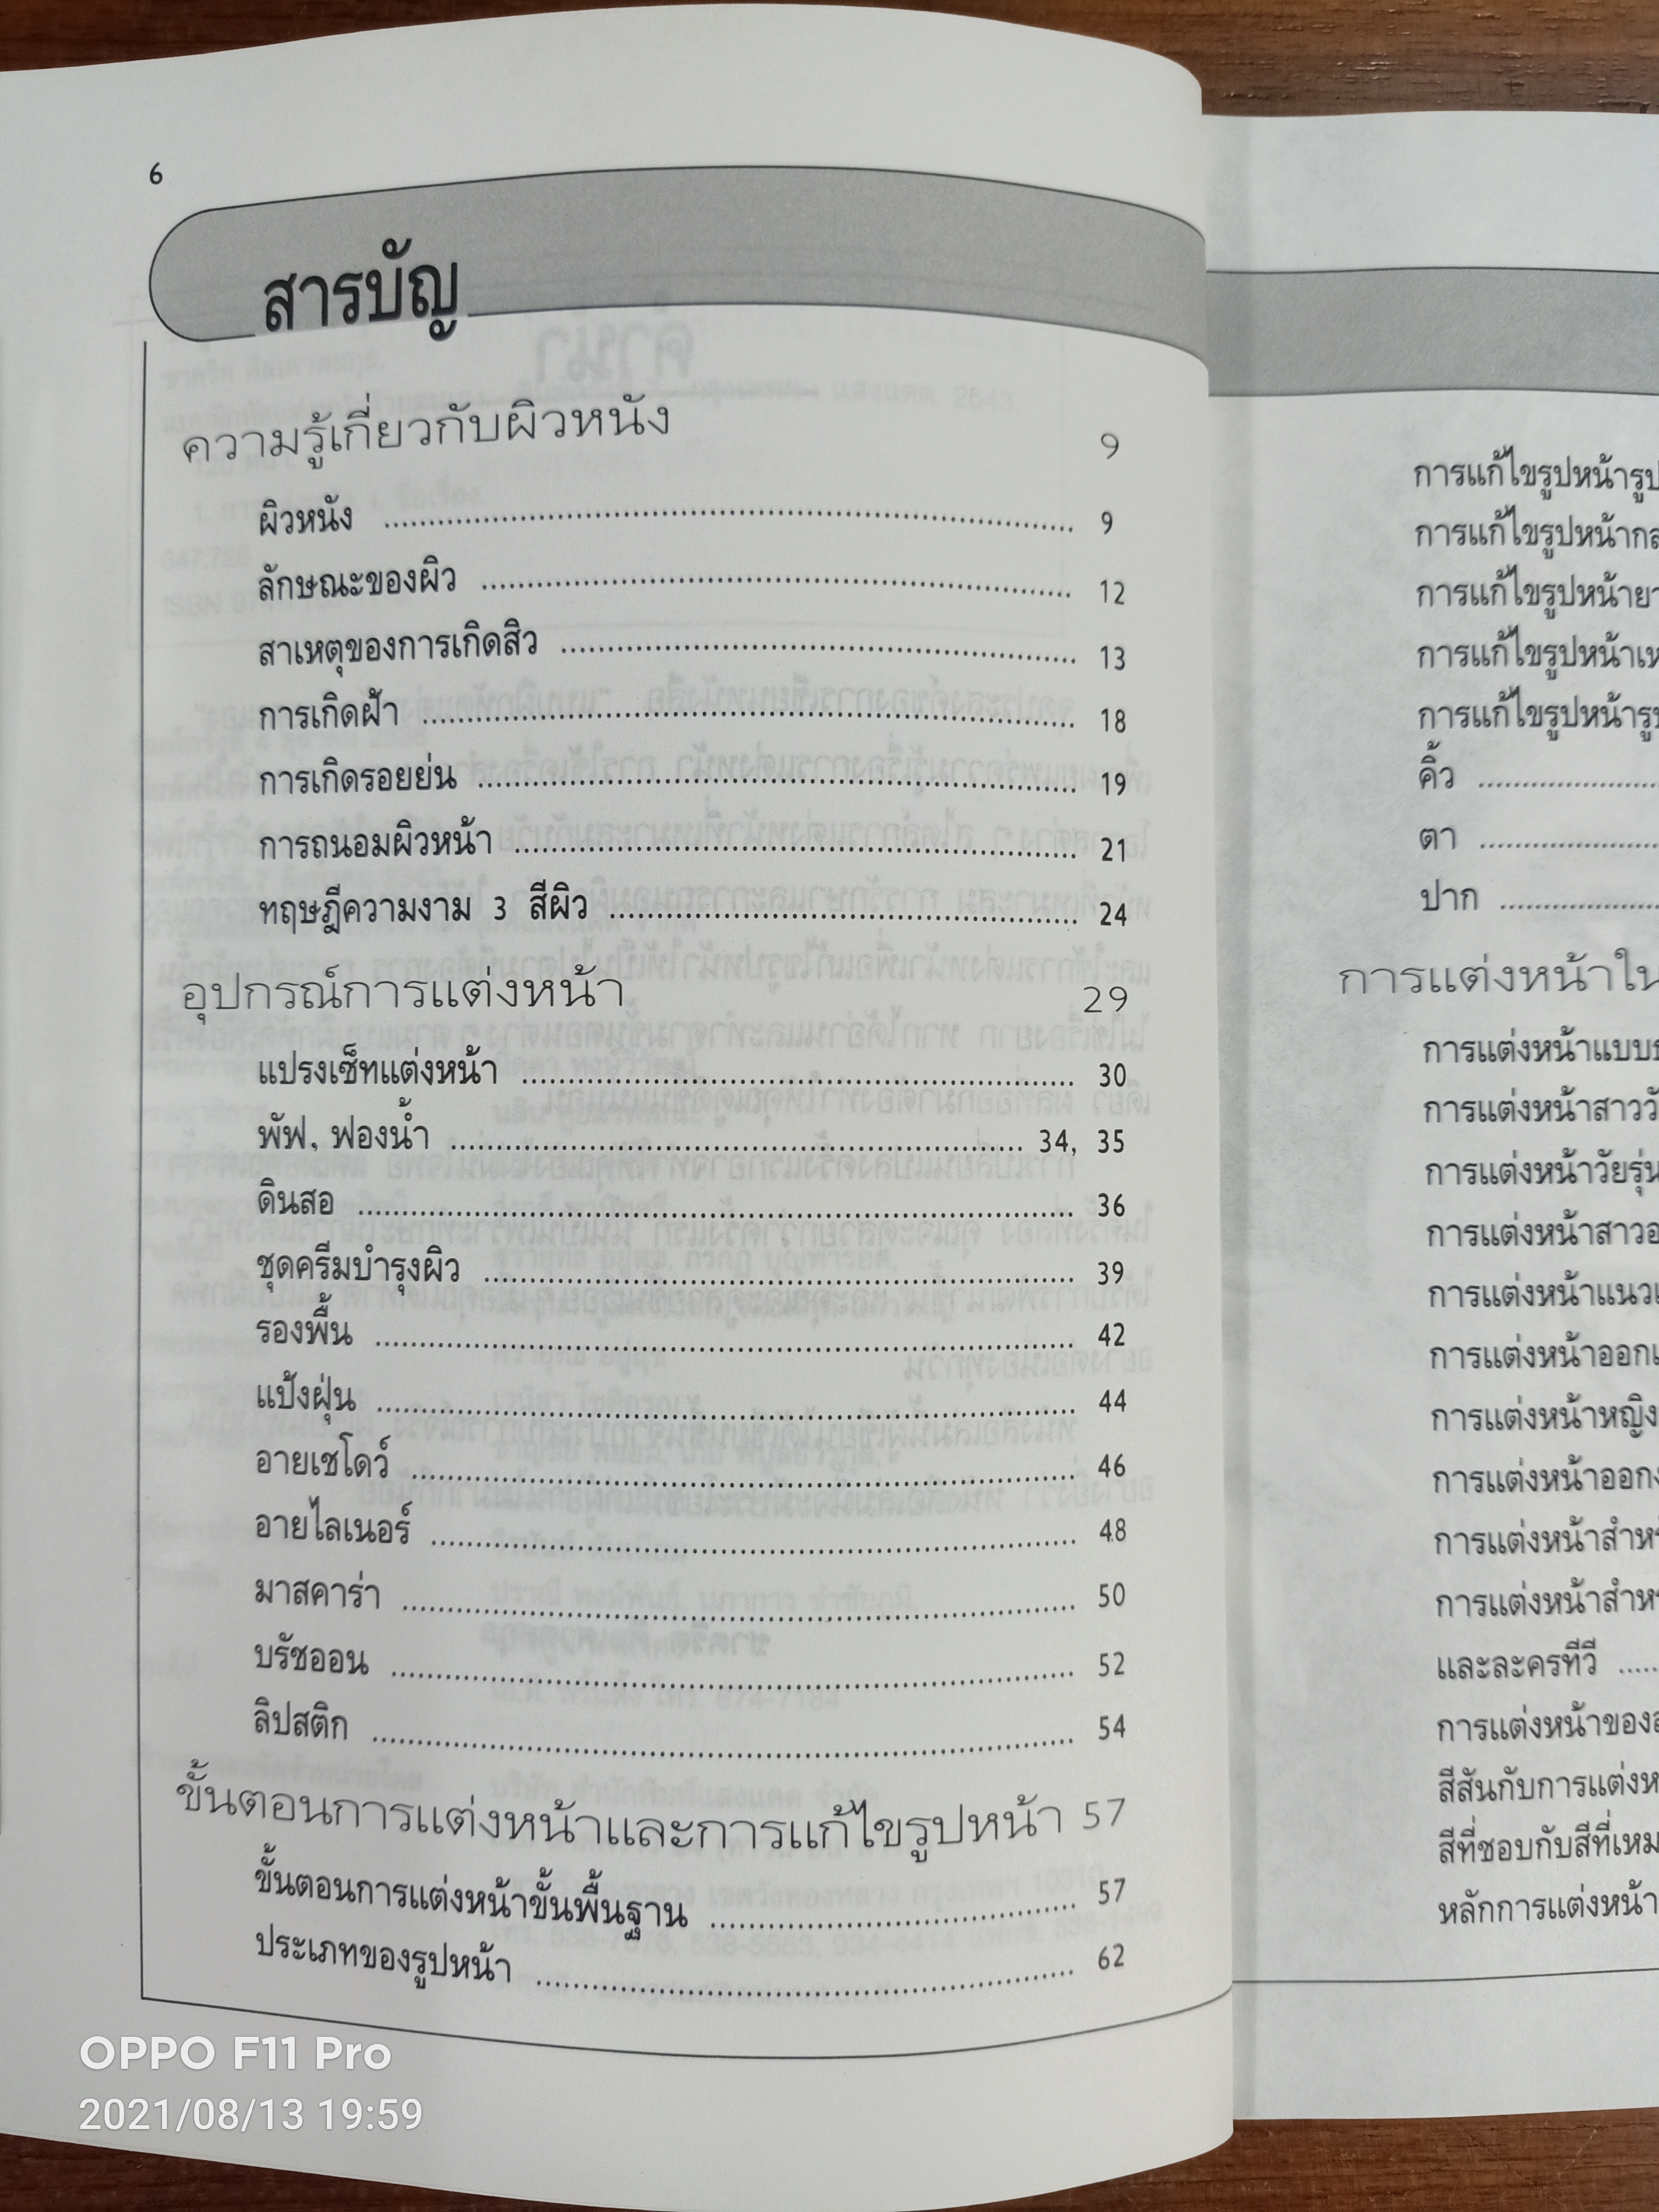 6
สารบัญ
ความรู้เกี่ยวกับผิวหนัง 9
ผิวหนัง ........ 9
ลักษณะของผิว ........ 12
สาเหตุของการเกิดสิว ........ 13
การเกิดฝ้า ........ 18
การเกิดรอยย่น ........ 19
การถนอมผิวหน้า ........ 21
ทฤษฎีความงาม 3 สีผิว ........ 24
อุปกรณ์การแต่งหน้า 29
แปรงเซ็ทแต่งหน้า ........ 30
พัฟ, ฟองน้ำ ........ 34, 35
ดินสอ ........ 36
ชุดครีมบำรุงผิว ........ 39
รองพื้น ........ 42
แป้งฝุ่น ........ 44
อายเชโดว์ ........ 46
อายไลเนอร์ ........ 48
มาสคาร่า ........ 50
บรัชออน ........ 52
ลิปสติก ........ 54
ขั้นตอนการแต่งหน้าและการแก้ไขรูปหน้า 57
ขั้นตอนการแต่งหน้าขั้นพื้นฐาน ........ 57
ประเภทของรูปหน้า ........ 62
การแก้ไขรูปหน้า
การแก้ไขรูปหน้า
การแก้ไขรูปหน้า
การแก้ไขรูปหน้า
การแก้ไขรูปหน้า
คิ้ว ........
ตา ........
ปาก ........
การแต่งหน้าใน
การแต่งหน้าแบบ
การแต่งหน้าสาว
การแต่งหน้าวัยรุ่น
การแต่งหน้าสาว
การแต่งหน้าแนว
การแต่งหน้าออก
การแต่งหน้าหญิง
การแต่งหน้าออก
การแต่งหน้า
การแต่งหน้า
และละครทีวี .....
การแต่งหน้าของ
สีสันกับการ
สีที่ชอบกับสีที่
หลักการแต่งหน้า
OPPO F11 Pro
2021/08/13 19:59